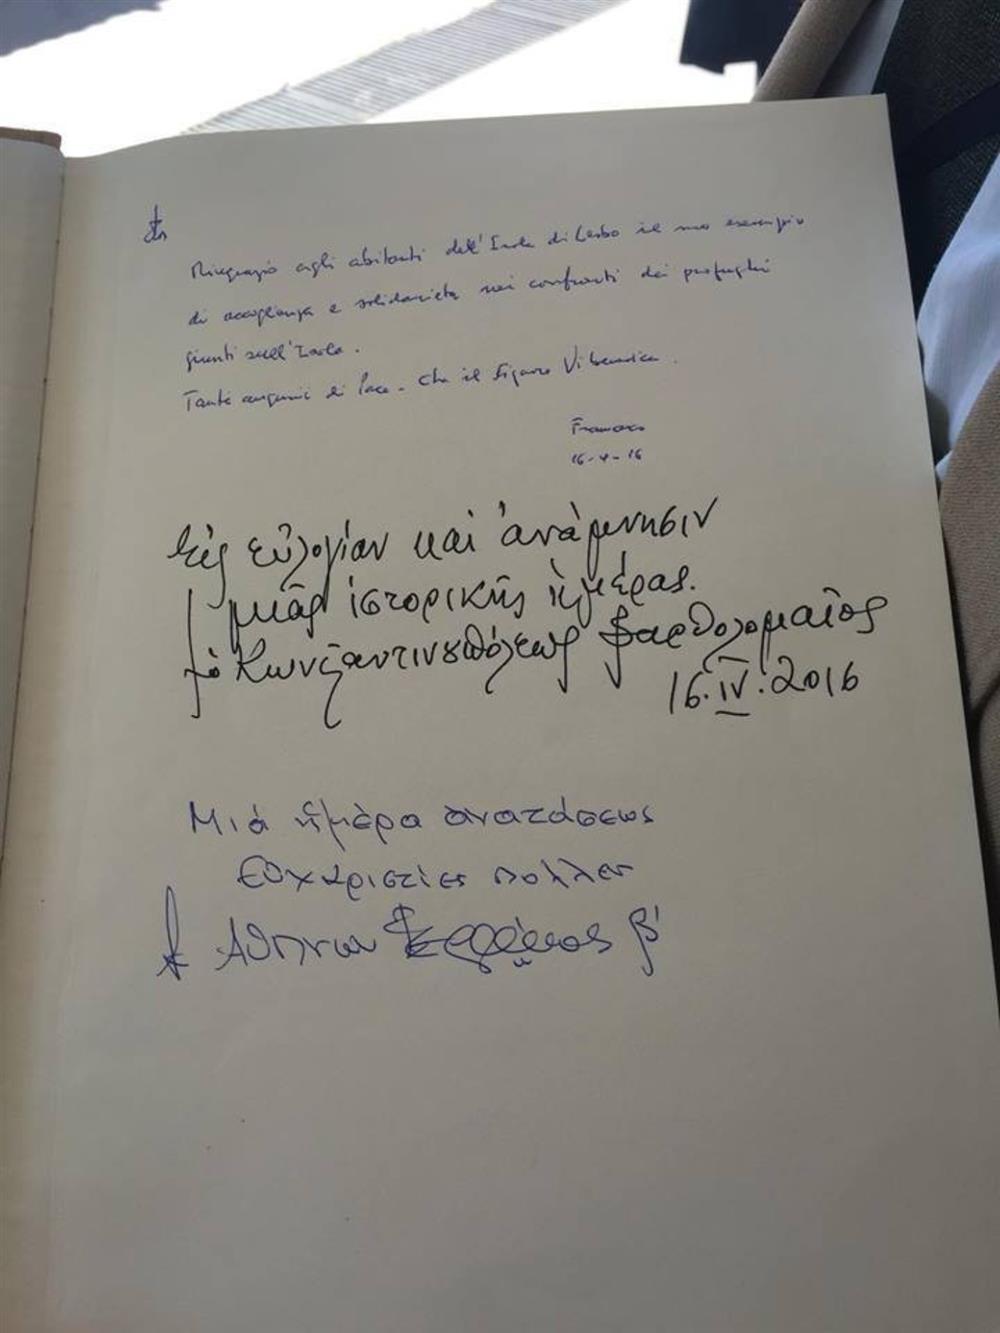 Ringrazio agli abitanti dell'Isola di Lesbo il suo esempio
di accoglienza e solidarietà nei confronti dei profughi
giunti sull'Isola.
Tanti auguri di Pace. Che il Signore Vi benedica.
Francesco
16-4-16
Εἰς εὐλογίαν καὶ ἀνάμνησιν
μιᾶς ἱστορικῆς ἡμέρας.
ὁ Κωνσταντινουπόλεως Βαρθολομαῖος
16.IV.2016
Μιά ἡμέρα αναστάσεως
Εὐχαριστίες πολλες
Αθηνων Ιερώνυμος β'